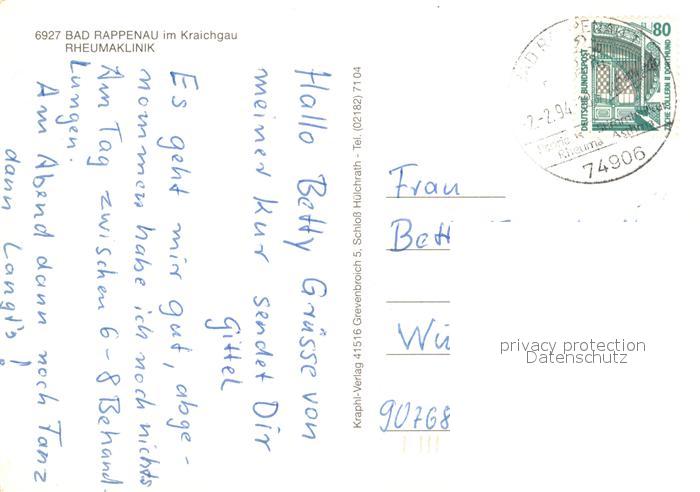 6927 BAD RAPPENAU im Kraichgau
RHEUMAKLINIK
Hallo Betty Grüsse von
meiner Kur sendet Dir
Gittel
Es geht mir gut, abge-
nommen habe ich noch nichts
Am Tag zwischen 6-8 Behand
Lungen.
Am Abend dann noch Tanz
dann Langt's!
Kraphl-Verlag 41516 Grevenbroich 5, Schloß Hülchrath - Tel. (02182) 7104
DEUTSCHE BUNDESPOST
80
ZECHE ZOLLERN II DORTMUND
BAD RAPPENAU
-2.-2.94
Rheuma
74906
Frau
Bett
Wü
90768
privacy protection
Datenschutz